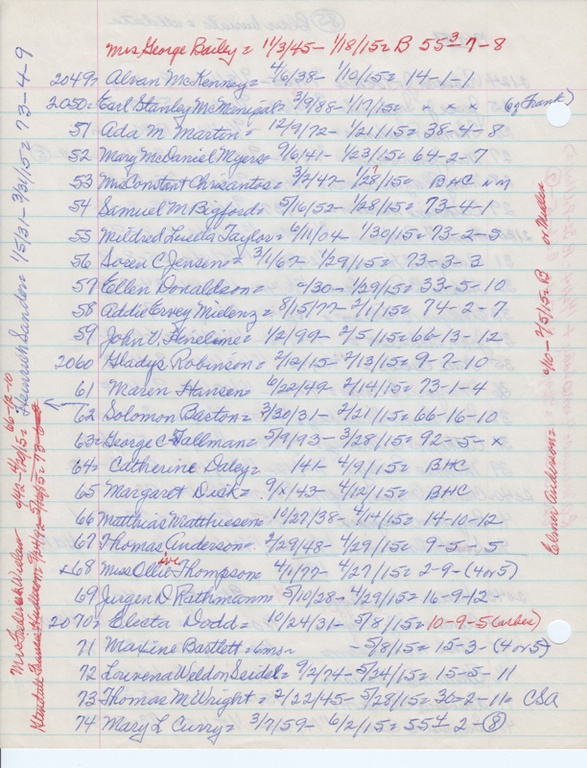 Mrs George Bailey = 11/3/45 - 1/18/15 = B 55 3 - 7 - 8
2049 = Alvan McKenney = 4/6/38 - 1/10/15 = 14-1-1
2050 = Earl Stanley McMenigal = 3/9/88 - 1/17/15 = x x x (by Frank)
51 Ada M Martin = 12/9/72 - 1/21/15 = 38-4-8
52 Mary McDaniel Myers = 9/6/41 - 1/23/15 = 64-2-7
53 Mrs Constant Chrisantos = 3/2/47 - 1/28/15 = BHC NM
54 Samuel M Bigford = 5/16/52 - 1/28/15 = 73-4-1
55 Mildred Luella Taylor = 6/11/04 - 1/30/15 = 73-2-5
56 Soren C Jensen = 3/1/67 - 1/29/15 = 73-3-3
57 Ellen Donaldson = 0/30 - 1/29/15 = 33-5-10
58 Addie Ervey Mielenz = 8/15/77 - 2/1/15 = 74-2-7
59 John V Hineline = 1/2/99 - 2/5/15 = 66-13-12
2060 Gladys Robinson = 2/12/15 - 2/13/15 = 9-7-10
61 Maren Hansen = 6/22/49 - 2/14/15 = 73-1-4
62 Solomon Barton = 3/30/31 - 2/21/15 = 66-16-10
63 = George C Fallman = 5/9/93 - 3/28/15 = 92-5-x
64 = Catherine Daley = 141 - 4/9/15 = BHC
65 Margaret Dusk = 9/x/43 - 4/12/15 = BHC
66 Matthias Matthiesen = 10/27/38 - 4/14/15 = 14-10-12
67 Thomas Anderson = 2/29/48 - 4/29/15 = 9-5-5
+68 Miss Ollie Thompson = 4/1/77 - 4/27/15 = 2-9-(4 or 5)
69 Jurgen D Rathmann 5/10/28 - 4/29/15 = 16-9-12
2070 = Electa Dodd = 10/24/31 - 5/8/15 = 10-9-5 (arber)
71 Maxine Bartlett = 6ms - 5/8/15 = 15-3-(4 or 5)
72 Lourena Weldon Seidel = 9/2/74 - 5/24/15 = 15-5-11
73 Thomas M Wright = 2/22/45 - 5/28/15 = 36-2-11 = CSA
74 Mary L Curry = 3/7/59 - 6/2/15 = 55 4 - 2 - 8
Heinrich Sander = 1/5/31 - 3/31/15 = 73-4-9
Mrs Fredrick 66-12-10
Elenor Anderson = 0/10 - 7/5/15 = B or Miller